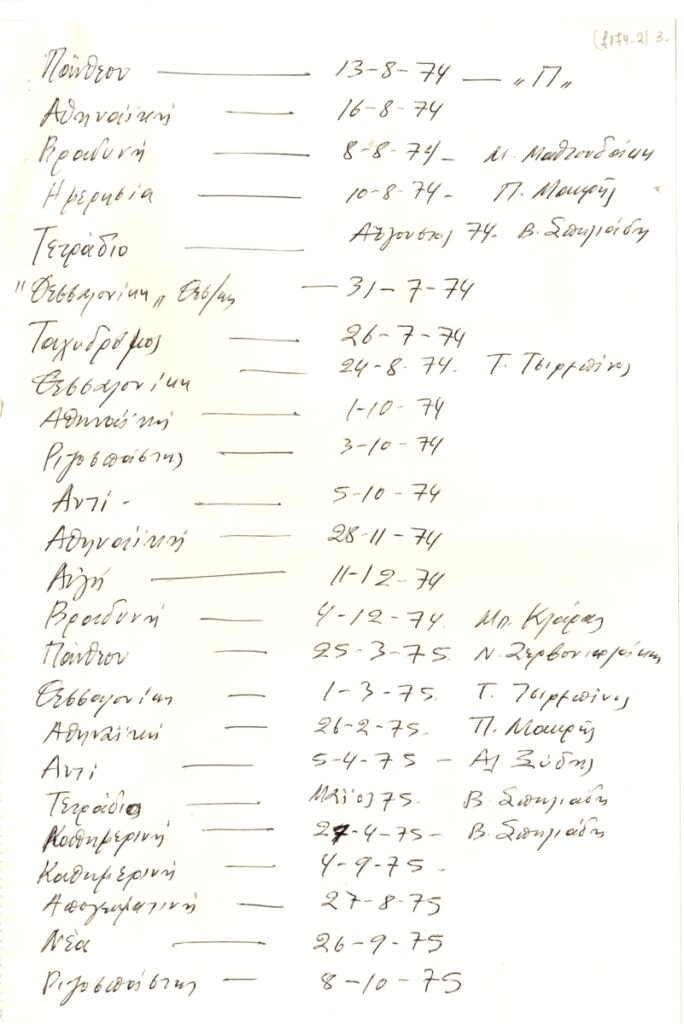 (f174-2) 3.
Πάνθεον — 13-8-74 — „Π„
Αθηναϊκή — 16-8-74
Βραδυνή — 8-8-74 - Μ. Μαθιουδάκη
Ημερησία — 10-8-74 - Π. Μακρής
Τετράδιο — Αύγουστος 74. Β. Σπηλιάδη
"Θεσσαλονίκη„ Θεσ/κης — 31-7-74
Ταχυδρόμος — 26-7-74
Θεσσαλονίκη — 24-8-74. Τ. Τσιρμπίνος
Αθηναϊκή — 1-10-74
Ριζοσπάστης — 3-10-74
Αντί - — 5-10-74
Αθηναϊκή — 28-11-74
Αυγή — 11-12-74
Βραδυνή — 4-12-74. Μπ. Κλάρας
Πάνθεον — 25-3-75.
Θεσσαλονίκη — 1-3-75. Τ. Τσιρμπίνος
Αθηναϊκή — 26-2-75. Π. Μακρής
Αντί — 5-4-75 - Αλ Ξύδης
Τετράδιο — Μάϊος 75. Β. Σπηλιάδη
Καθημερινή — 27-4-75 - Β. Σπηλιάδη
Καθημερινή — 4-9-75.
Απογευματινή — 27-8-75
Νέα — 26-9-75
Ριζοσπάστης — 8-10-75